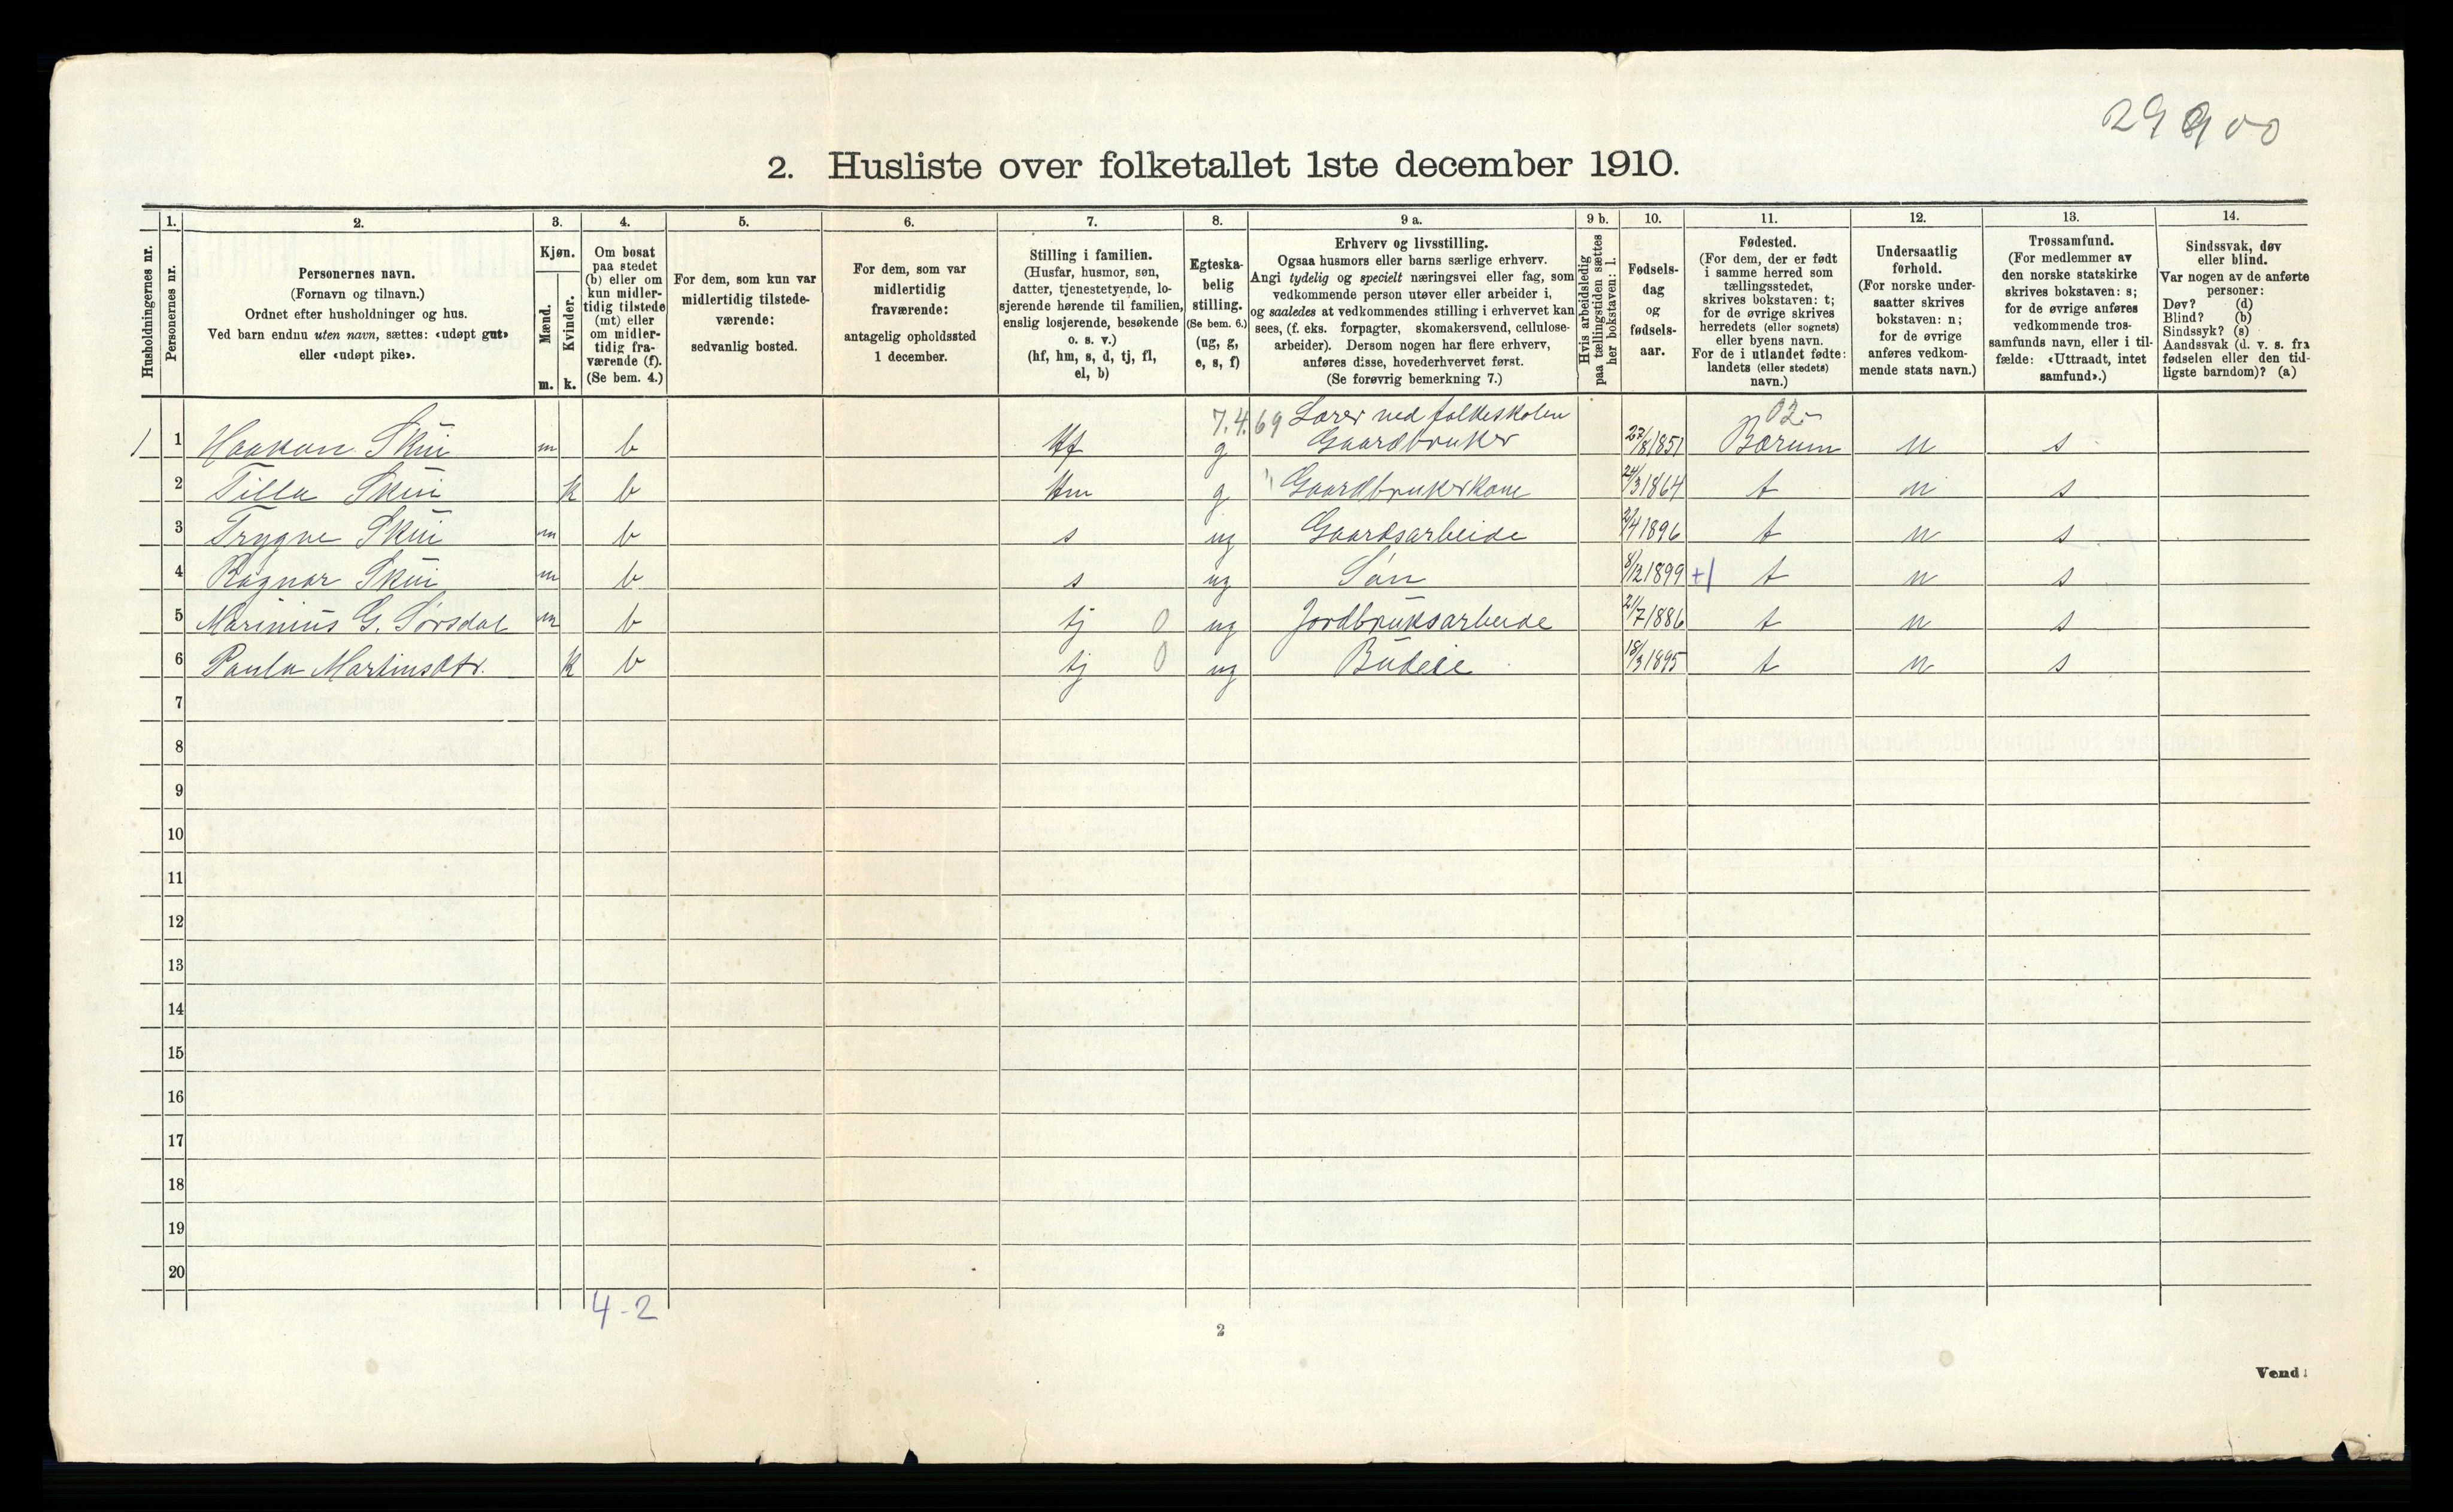 29900
2. Husliste over folketallet 1ste december 1910.
Husholdningernes nr.
1.
Personernes nr.
2.
Personernes navn.
(Fornavn og tilnavn.)
Ordnet efter husholdninger og hus.
Ved barn endnu uten navn, sættes: «udøpt gut»
eller «udøpt pike».
3.
Kjøn.
Mænd.
Kvinder.
m. k.
4.
Om bosat
paa stedet
(b) eller om
kun midler-
tidig tilstede
(mt) eller
om midler-
tidig fra-
værende (f).
(Se bem. 4.)
5.
For dem, som kun var
midlertidig tilstede-
værende:
sedvanlig bosted.
6.
For dem, som var
midlertidig
fraværende:
antagelig opholdssted
1 december.
7.
Stilling i familien.
(Husfar, husmor, søn,
datter, tjenestetyende, lo-
sjerende hørende til familien,
enslig losjerende, besøkende
o. s. v.)
(hf, hm, s, d, tj, fl,
el, b)
8.
Egteska-
belig
stilling.
(Se bem. 6.)
(ug, g,
e, s, f)
9 a.
Erhverv og livsstilling.
Ogsaa husmors eller barns særlige erhverv.
Angi tydelig og specielt næringsvei eller fag, som
vedkommende person utøver eller arbeider i,
og saaledes at vedkommendes stilling i erhvervet kan
sees, (f. eks. forpagter, skomakersvend, cellulose-
arbeider). Dersom nogen har flere erhverv,
anføres disse, hovederhvervet først.
(Se forøvrig bemerkning 7.)
9 b.
Hvis arbeidsledig
paa tællingstiden sættes
her bokstaven: l.
10.
Fødsels-
dag
og
fødsels-
aar.
11.
Fødested.
(For dem, der er født
i samme herred som
tællingsstedet,
skrives bokstaven: t;
for de øvrige skrives
herredets (eller sognets)
eller byens navn.
For de i utlandet fødte:
landets (eller stedets)
navn.)
12.
Undersaatlig
forhold.
(For norske under-
saatter skrives
bokstaven: n;
for de øvrige
anføres vedkom-
mende stats navn.)
13.
Trossamfund.
(For medlemmer av
den norske statskirke
skrives bokstaven: s;
for de øvrige anføres
vedkommende tros-
samfunds navn, eller i til-
fælde: «Uttraadt, intet
samfund».)
14.
Sindssvak, døv
eller blind.
Var nogen av de anførte
personer:
Døv? (d)
Blind? (b)
Sindssyk? (s)
Aandssvak (d. v. s. fra
fødselen eller den tid-
ligste barndom)? (a)
7.4.69 Lærer ved folkeskolen 02
1 1 Haakon Skui m b hf g Gaardbruker 27/8 1851 Bærum n s
2 Tilla Skui k b hm g Gaardbrukerkone 24/3 1864 t n s
3 Trygve Skui m b s ug Gaardsarbeide 2/4 1896 t n s
4 Ragnar Skui m b s ug Søn 8/12 1899 +1 t n s
5 Marinius G. Sørsdal m b tj 0 ug Jordbruksarbeide 21/7 1886 t n s
6 Paula Martinsdtr. k b tj 0 ug Budeie 18/3 1895 t n s
7
8
9
10
11
12
13
14
15
16
17
18
19
20
4-2
2
Vend!